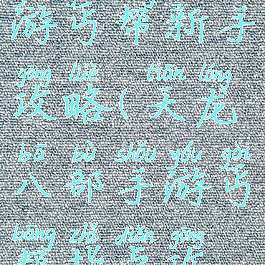 游丐帮新手
gōng lüè tiān lóng
攻略(天龙
bā bù shǒu yóu gài
八部手游丐
bāng diǎn gōng